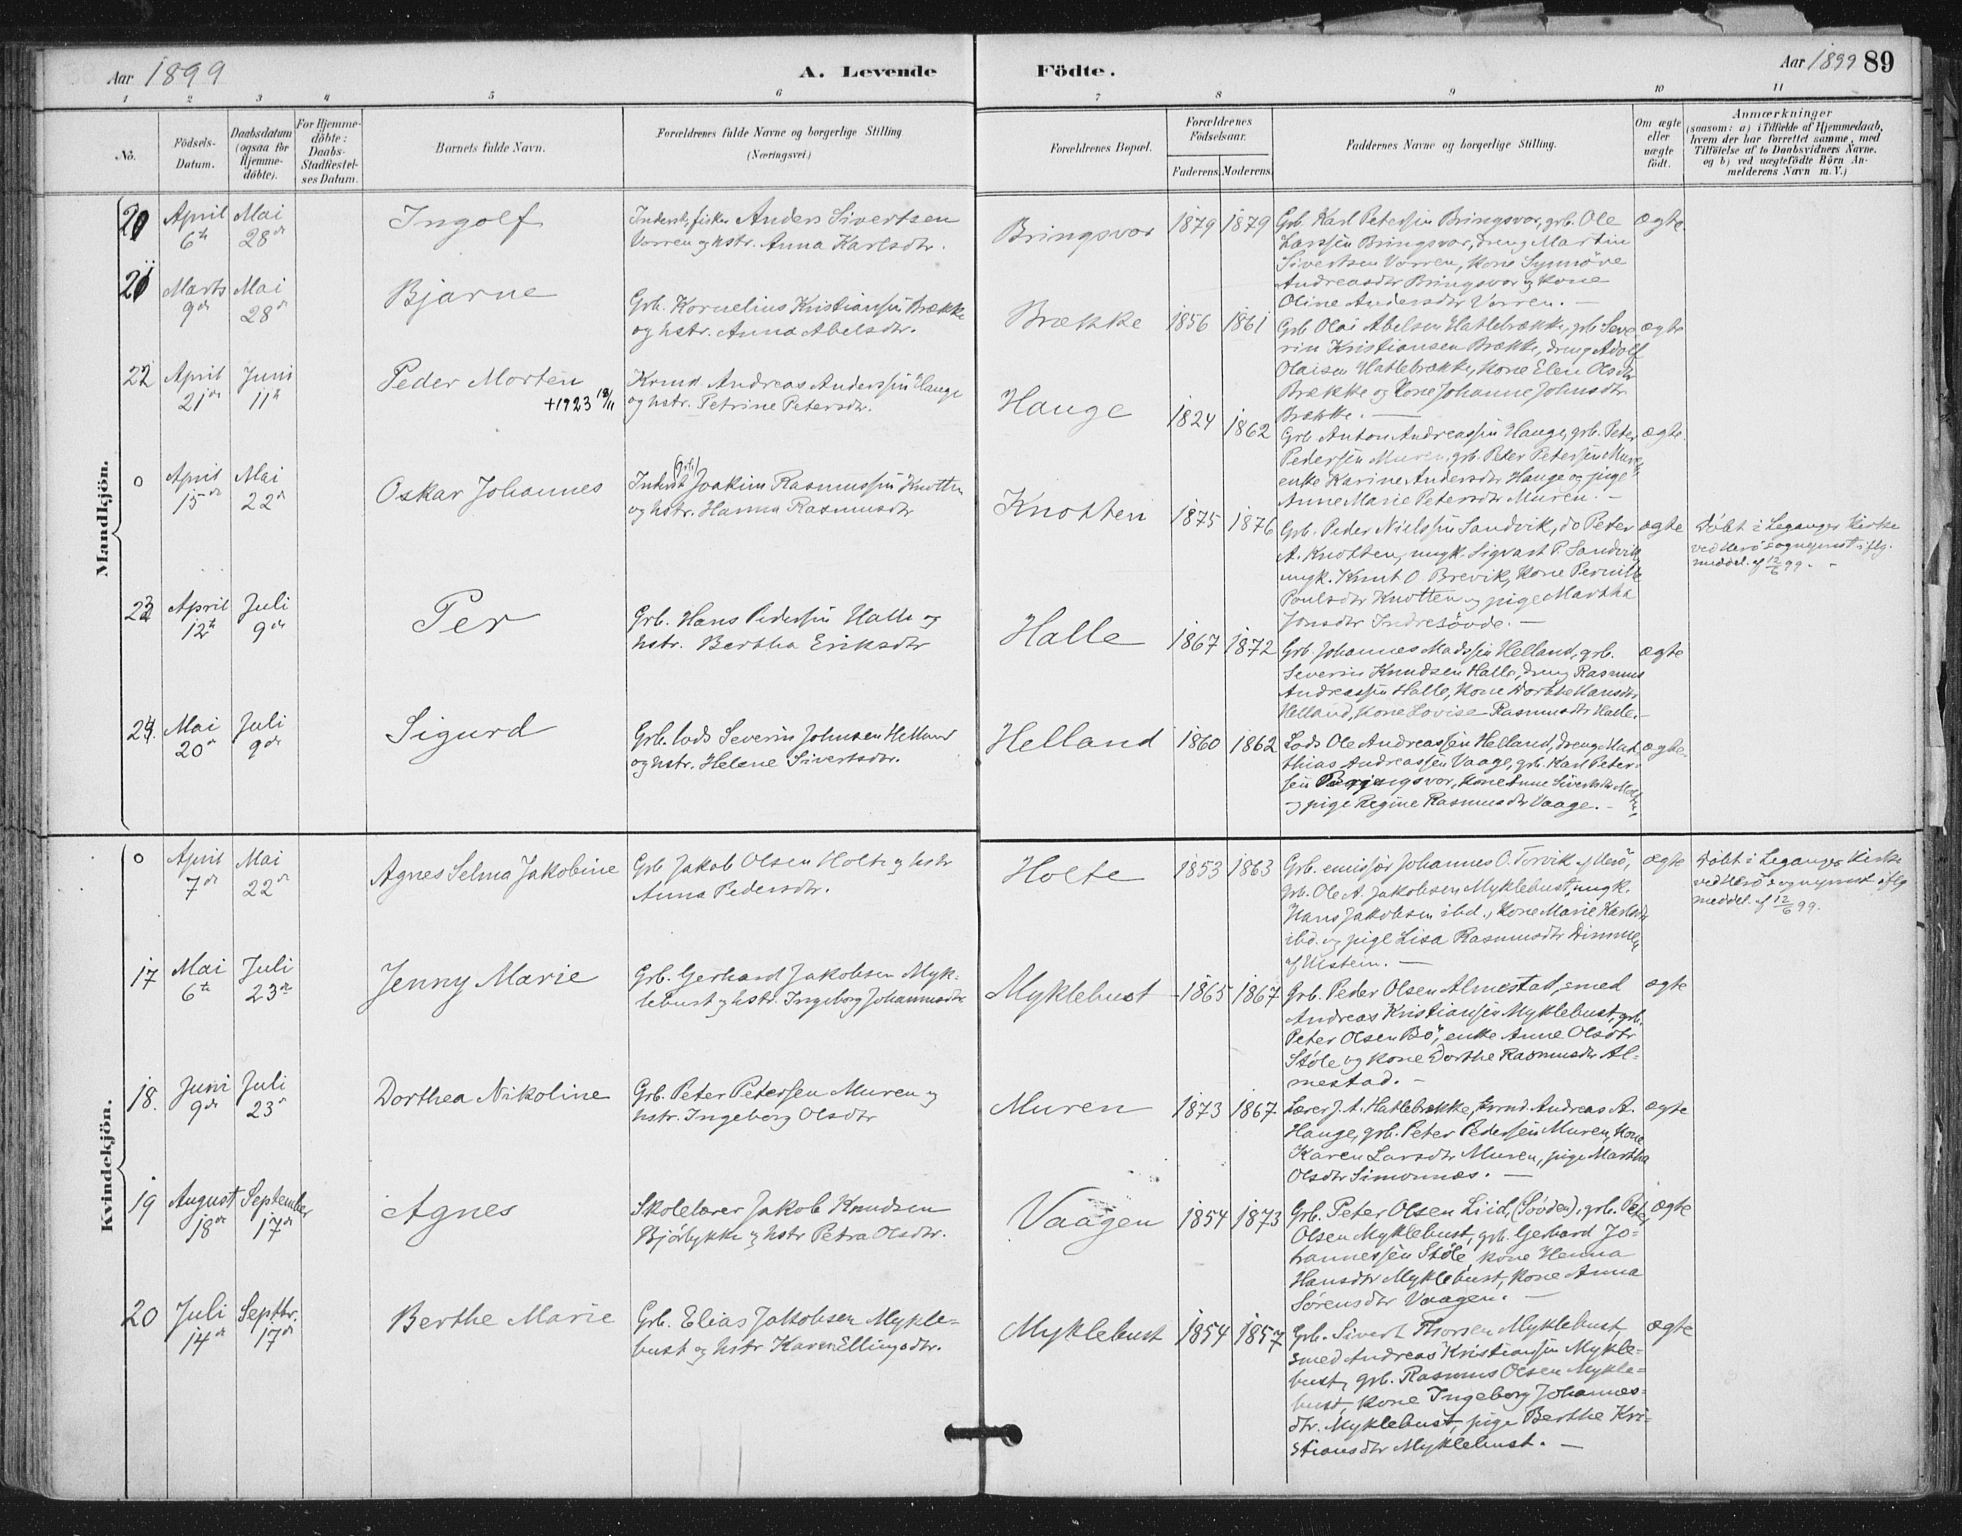 Aar 1899
A. Levende
Födte.
Aar 1899 89
1 2 3 4 5 6 7 8 9 10 11
No.
Födsels-
Datum.
Daabsdatum
(ogsaa for
Hjemme-
döbte).
For Hjemme-
döbte:
Daabs-
Stadfæstel-
ses Datum.
Barnets fulde Navn.
Forældrenes fulde Navne og borgerlige Stilling
(Næringsvei.)
Forældrenes Bopæl.
Forældrenes
Födselsaar.
Faderens. Moderens.
Faddernes Navne og borgerlige Stilling.
Om ægte
eller
uægte
födt.
Anmærkninger
(saasom: a) i Tilfælde af Hjemmedaab,
hvem der har forrettet samme, med
Tilföielse af to Daabsvidners Navne.
og b) ved uægtefödte Börn An-
melderens Navn m. V.)
Mandkjön.
20
April
6te
Mai
28de
Ingolf
Inderst, fisker Anders Sivertsen
Vorren og hstr. Anna Karlsdtr.
Bringsvor
1879 1879
Grb. Karl Peterssen Bringsvor, grb. Ole
Larssen Bringsvor, dreng Martin
Sivertsen Vorren, kone Synnöve
Andreasdtr Bringsvor og kone
Oline Andersdtr Vorren. —
ægte
21
Marts
9de
Mai
28de
Bjarne
Grb. Kornelius Kristianssen Brække
og hstr. Anna Abelsdtr.
Brække
1856 1861
Grb. Olai Abelsen Hatlebrække, grb. Seve
rin Kristiansen Brække, dreng Adolf
Olaisen Hatlebrække, kone Elen Olsdtr
Brække og kone Johanne Johnsdtr
Brække. —
ægte
22
April
21de
Juni
11te
Peder Morten
+1923 18/11
Krmd. Andreas Anderssen Hauge
og hstr. Petrine Petersdtr.
Hauge
1824 1862
Grb. Anton Andreassen Hauge, grb. Peter
Pederssen Muren, grb. Peter Peterssen Muren,
enke Karine Andersdtr Hauge og pige
Anne Marie Petersdtr Muren. —
ægte.
0
April
15de
Mai
22de
Oskar Johannes
Inderst (grb.) Joakim Rasmussen Knotten
og hstr. Hanna Rasmusdtr
Knotten
1875 1876
Grb. Peder Nielssen Sandvik, do Peter
A. Knotten, ungk. Sigvart P. Sandvik,
ungk. Knut O. Brevik, kone Pernille
Poulsdtr Knotten og pige Martha
Jonsdtr Indresövde. —
ægte
Döbt i Leganger Kirke
ved Herö sogneprest iflg.
meddel. af 12/6 99. —
23
April
12te
Juli
9de
Per
Grb. Hans Pederssen Halle og
hstr. Bertha Eriksdtr
Halle
1867 1872
Grb. Johannes Madssen Helland, grb.
Severin Knudsen Halle, dreng Rasmus
Andreassen Halle, kone Dorthe Hansdtr
Helland, kone Lovise Rasmusdtr Halle. —
ægte
24.
Mai
20de
Juli
9de
Sigurd
Grb. lods Severin Johnsen Helland
og hstr. Helene Sivertsdtr.
Helland
1860 1862
Lods Ole Andreassen Helland, dreng Mat
thias Andreassen Vaage, grb. Karl Peter-
sen Bringsvor, kone Anne Sivertsdtr
og pige Regine Rasmusdtr Vaage. —
ægte.
Kvindekjön.
0
April
7de
Mai
22de
Agnes Selma Jakobine
Grb Jakob Olsen Holte og hstr
Anna Pedersdtr.
Holte
1853 1863
Grb. emissær Johannes O. Torvik af Herö,
grb. Ole A. Jakobsen Myklebust, ungk.
Hans Jakobsen ibd., kone Marie Karlsdtr
ibd. og pige Lisa Rasmusdtr Dimmen
af Ulstein. —
ægte
Döbt i Leganger Kirke
ved Herö sogneprest iflg
meddel. af 12/6 99.
17
Mai
6te
Juli
23de
Jenny Marie
Grb. Gerhard Jakobsen Myk-
lebust og hstr. Ingeborg Johannesdtr
Myklebust
1865 1867
Grb. Peder Olsen Almestad, smed
Andreas Kristianssen Myklebust, grb.
Peter Olsen Bö, enke Anne Olsdtr
Stöle og kone Dorthe Rasmusdtr Al-
mestad. —
ægte
18.
Juni
9de
Juli
23de
Dorthea Nikoline
Grb. Peter Peterssen Muren og
hstr. Ingeborg Olsdtr
Muren
1873 1867
Lærer J. A. Hatlebrække, krmd. Andreas A.
Hauge, grb. Peter Pederssen Muren, kone
Karen Larsdtr Muren, pige Martha
Olsdtr Simonnes. —
ægte
19
August
18de
September
17de
Agnes
Skolelærer Jakob Knudsen
Bjórlykke og hstr Petra Olsdtr.
Vaagen
1854 1873
Grb. Peter Olsen Liid, (Sövden), grb. Peter
Olsen Myklebust, grb. Gerhard Jo-
hannessen Stöle, kone Henna
Hansdtr Myklebust, kone Anna
Sörensdtr Vaagen. —
ægte
20
Juli
14de
Septbr.
17de
Berthe Marie
Grb. Elias Jakobsen Mykle-
bust og hstr Karen Ellingsdtr.
Myklebust
1854 1857
Grb. Sivert Thorsen Myklebust,
smed Andreas Kristianssen Mykle-
bust, grb. Rasmus Olsen Mykle-
bust, kone Ingeborg Johannes-
dtr. Myklebust, pige Berthe Kri-
stiansdtr Myklebust. —
ægte